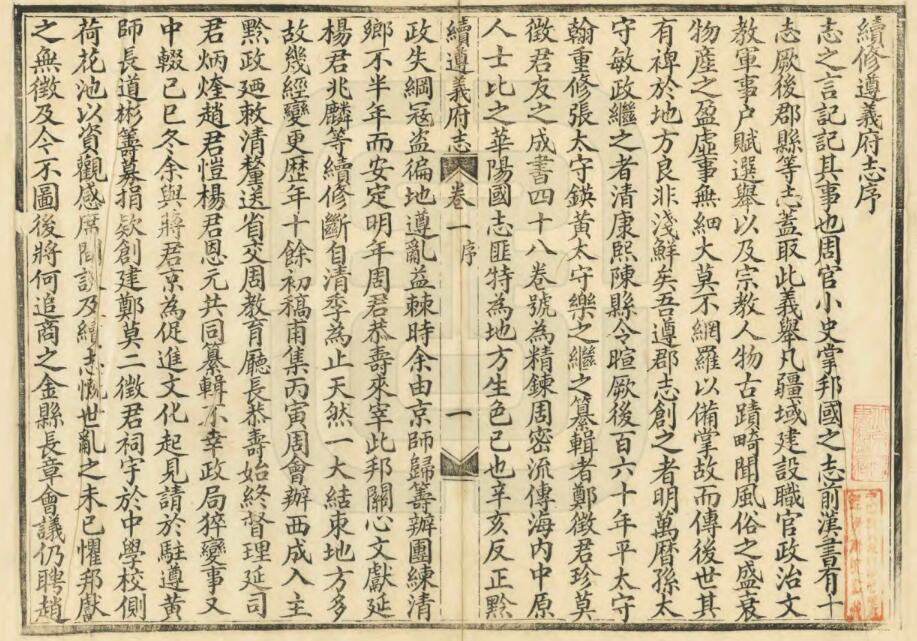 續修遵義府志序
志之言記記其事也周官小史掌邦國之志前漢書有十
志厥後郡縣等志蓋取此義舉凡疆域建設職官政治文
教軍事户賦選舉以及宗教人物古蹟畸聞風俗之盛衰
物產之盈虛事無細大莫不網羅以備掌故而傳後世其
有裨於地方良非淺鮮矣吾遵郡志創之者明萬曆孫太
守敏政繼之者清康熙陳縣令暄厥後百六十年平太守
翰重修張太守鍈黃太守樂之繼之纂輯者鄭徵君珍莫
徵君友之成書四十八卷號為精鍊周密流傳海内中原
人士比之華陽國志匪特為地方生色已也辛亥反正黔
續遵義府志 卷一 序 一
政失綱冠盗徧地遵亂益棘時余由京師歸籌辦團練清
鄉不半年而安定明年周君恭壽來宰此邦關心文獻延
楊君兆麟等續修斷自清季為止天然一大結束地方多
故幾經變更歷年十餘初稿甫集丙寅周會辦西成入主
黔政廼敕清釐送省交周教育廳長恭壽始終督理延司
君炳煃趙君愷楊君恩元共同纂輯不幸政局猝變事又
中輟已巳冬余與蔣君京為促進文化起見請於駐遵黃
師長道彬籌募捐欵創建鄭莫二徵君祠宇於中學校側
荷花池以資觀感席間談及續志慨世亂之未已懼邦獻
之無徵及今不圖後將何追商之金縣長章會議仍聘趙